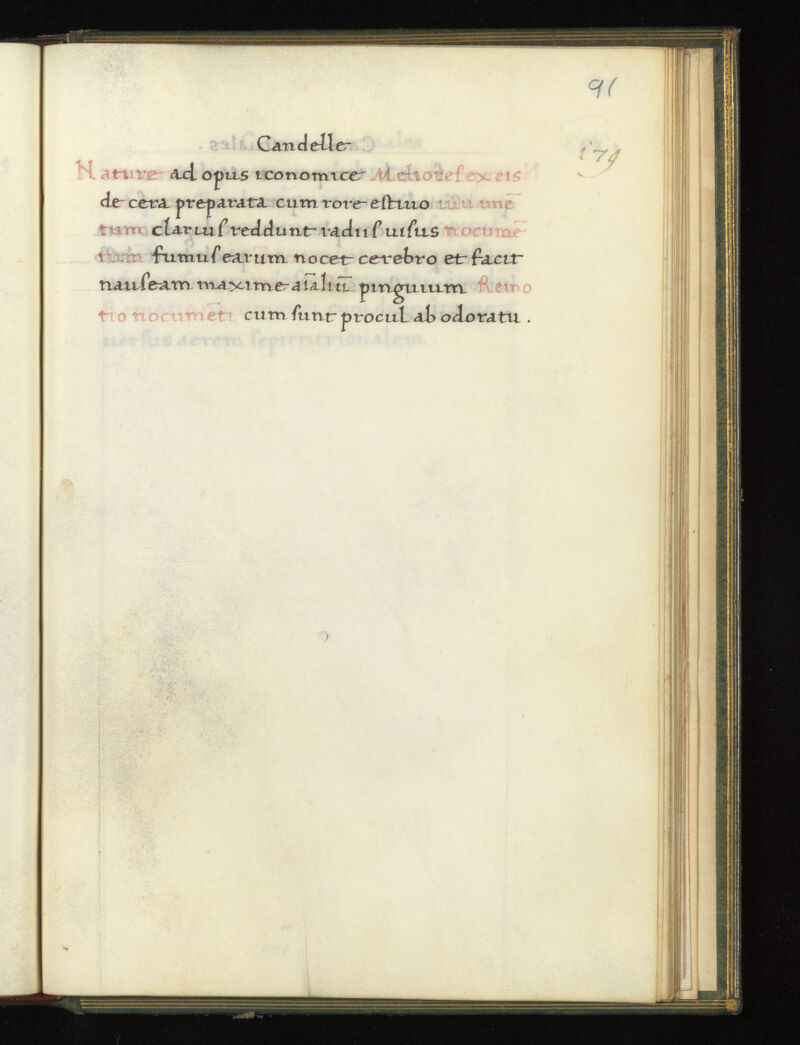 91
179
Candelle
Nature ad opus iconomice Meliores ex eis
de cera preparata cum rore estiuo iuuame͞
tum clarius reddunt radii s uisus nocume͞
tum fumus earum nocet cerebro et facit
nauseam maxime ai͞aliu͞ pinguium Remo
tio nocume͞ti cum sunt procul ab odoratu .